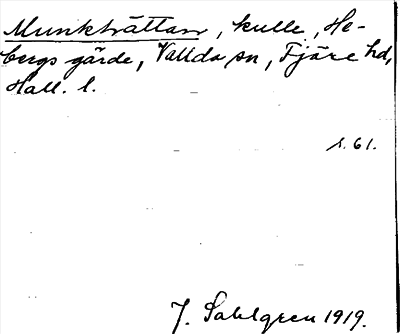 Munkträttan, kulle, He-
bergs gärde, Vallda sn, Fjäre hd,
Hall. l.
s. 61.
J. Sahlgren 1919.